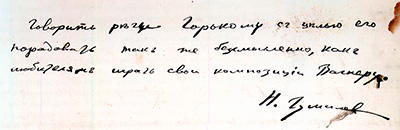 Говорить рѣчи Горькому съ цѣлью его
порадовать такъ же безсмысленно, какъ
любителямъ играть свои композиціи Вагнеру.
Н. Гумилевъ